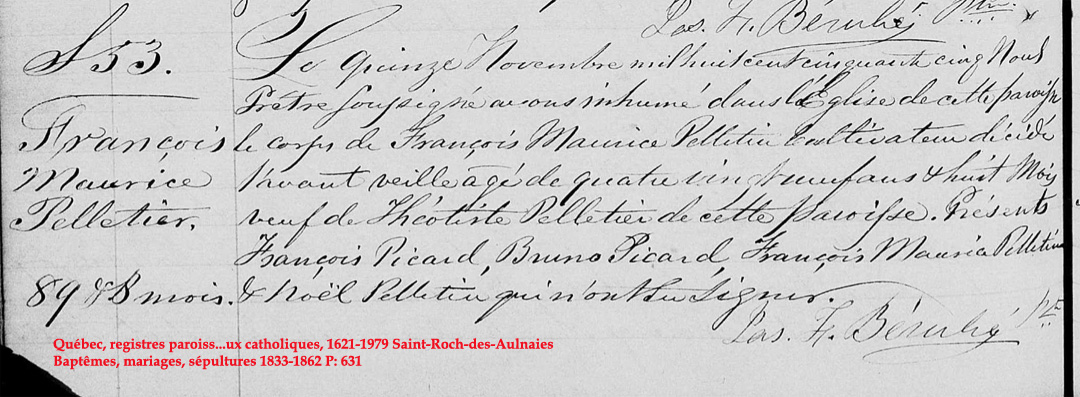 Jos. H. Bérubé, Ptre.
S 53.
François
Maurice
Pelletier.
89 & 8 mois.
Le quinze Novembre mil huit cent cinquante cinq Nous
Prêtre soussigné avons inhumé dans l'Eglise de cette paroisse
le corps de François Maurice Pelletier Cultivateur décédé
l'avant veille âgé de quatre vingt neuf ans & huit Mois
veuf de Théotiste Pelletier de cette paroisse. Présents
François Picard, Bruno Picard, François Maurice Pelletier
& Noël Pelletier qui n'ont su signer.
Jos. H. Bérubé Ptre
Québec, registres paroiss...ux catholiques, 1621-1979 Saint-Roch-des-Aulnaies
Baptêmes, mariages, sépultures 1833-1862 P: 631